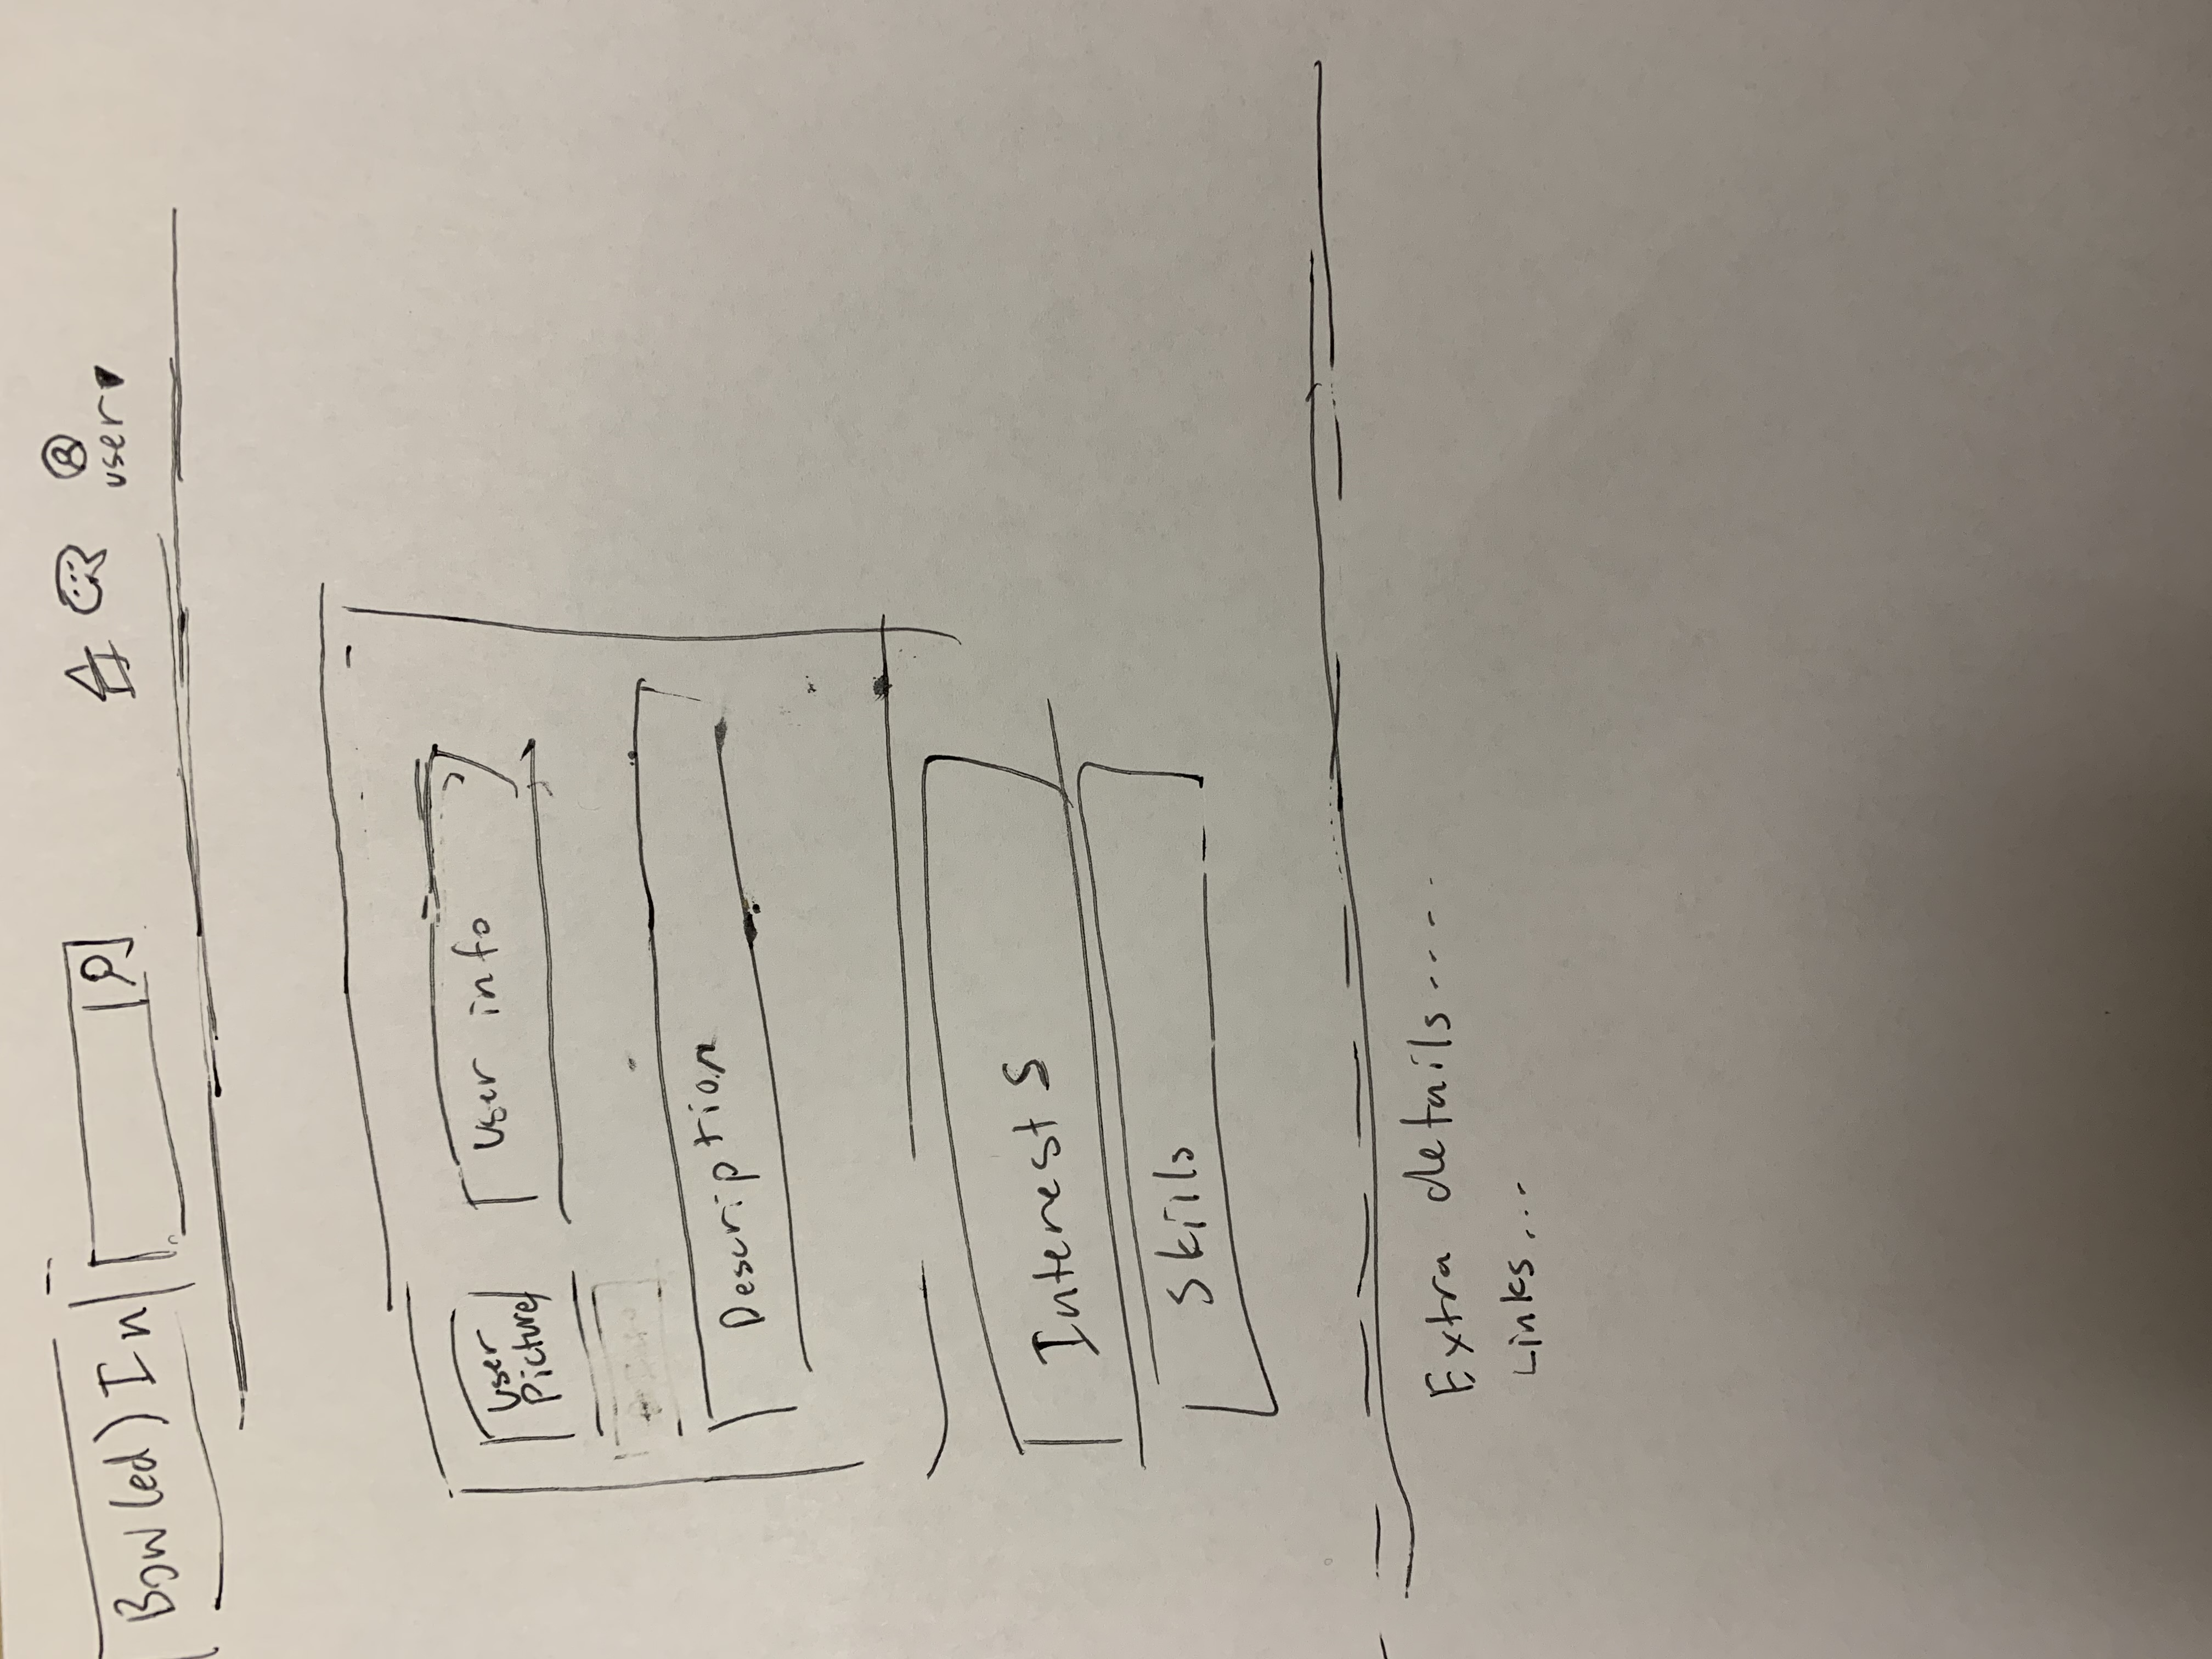 Bow(ed) In
user
User
Picture
User info
Description
Interests
Skills
Extra details....
Links...